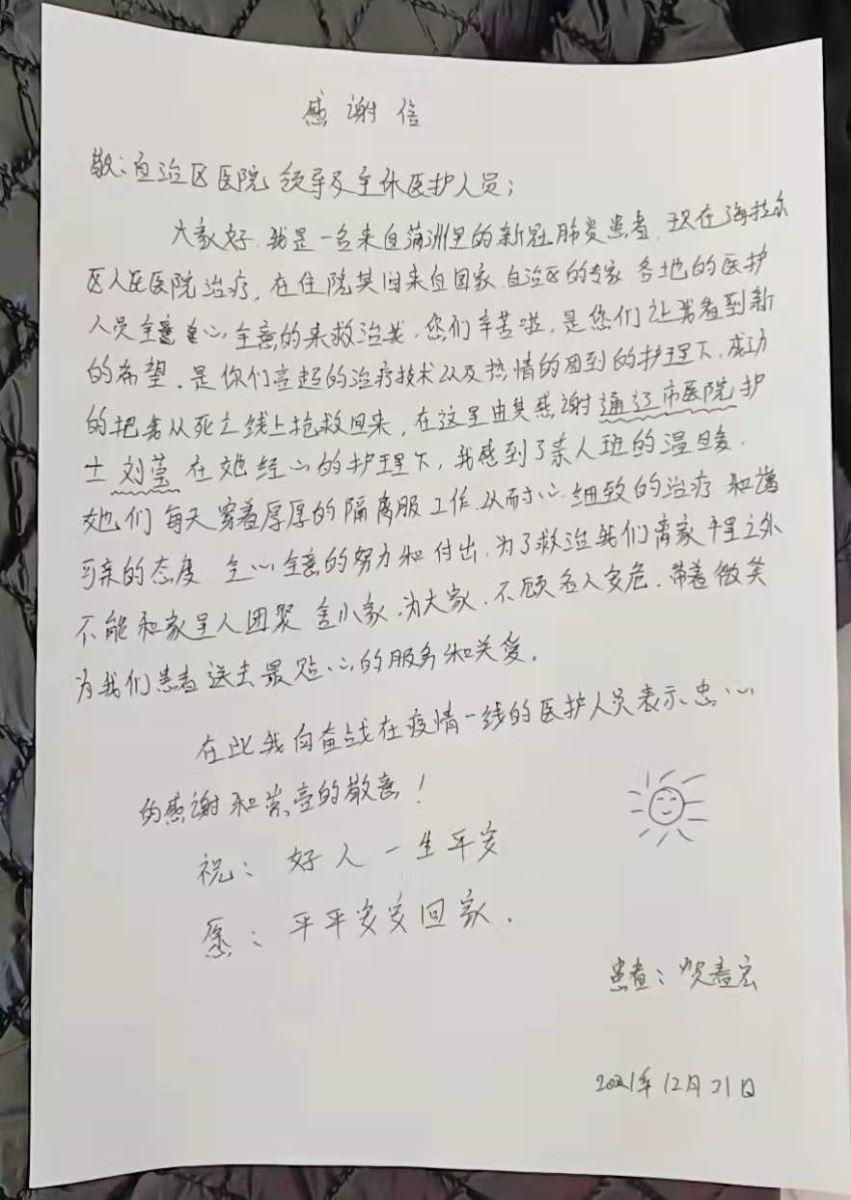 感谢信
敬：自治区医院领导及全体医护人员；
大家好.我是一名来自满洲里的新冠肺炎患者.现在海拉尔
区人民医院治疗，在住院其间来自国家.自治区的专家.各地的医护
人员全意全心全意的来救治我.您们辛苦啦，是您们让我看到新
的希望.是你们高超的治疗技术以及热情的周到的护理下.成功
的把我从死亡线上抢救回来，在这里由其感谢通辽市医院护
士刘莹在她经心的护理下，我感到了亲人班的温暖.
她们每天穿着厚厚的隔离服工作.从而小心细致的治疗和蔼
可亲的态度 全心全意的努力和付出.为了救治我们离家千里之外
不能和家里人团聚 舍小家.为大家.不顾各人安危.带着微笑
为我们患者送去最贴心的服务和关爱.
在此我向奋战在疫情一线的医护人员表示忠心
的感谢和崇高的敬意！
祝：好人一生平安
愿：平平安安回家.
患者：贺春宏
2021年12月21日